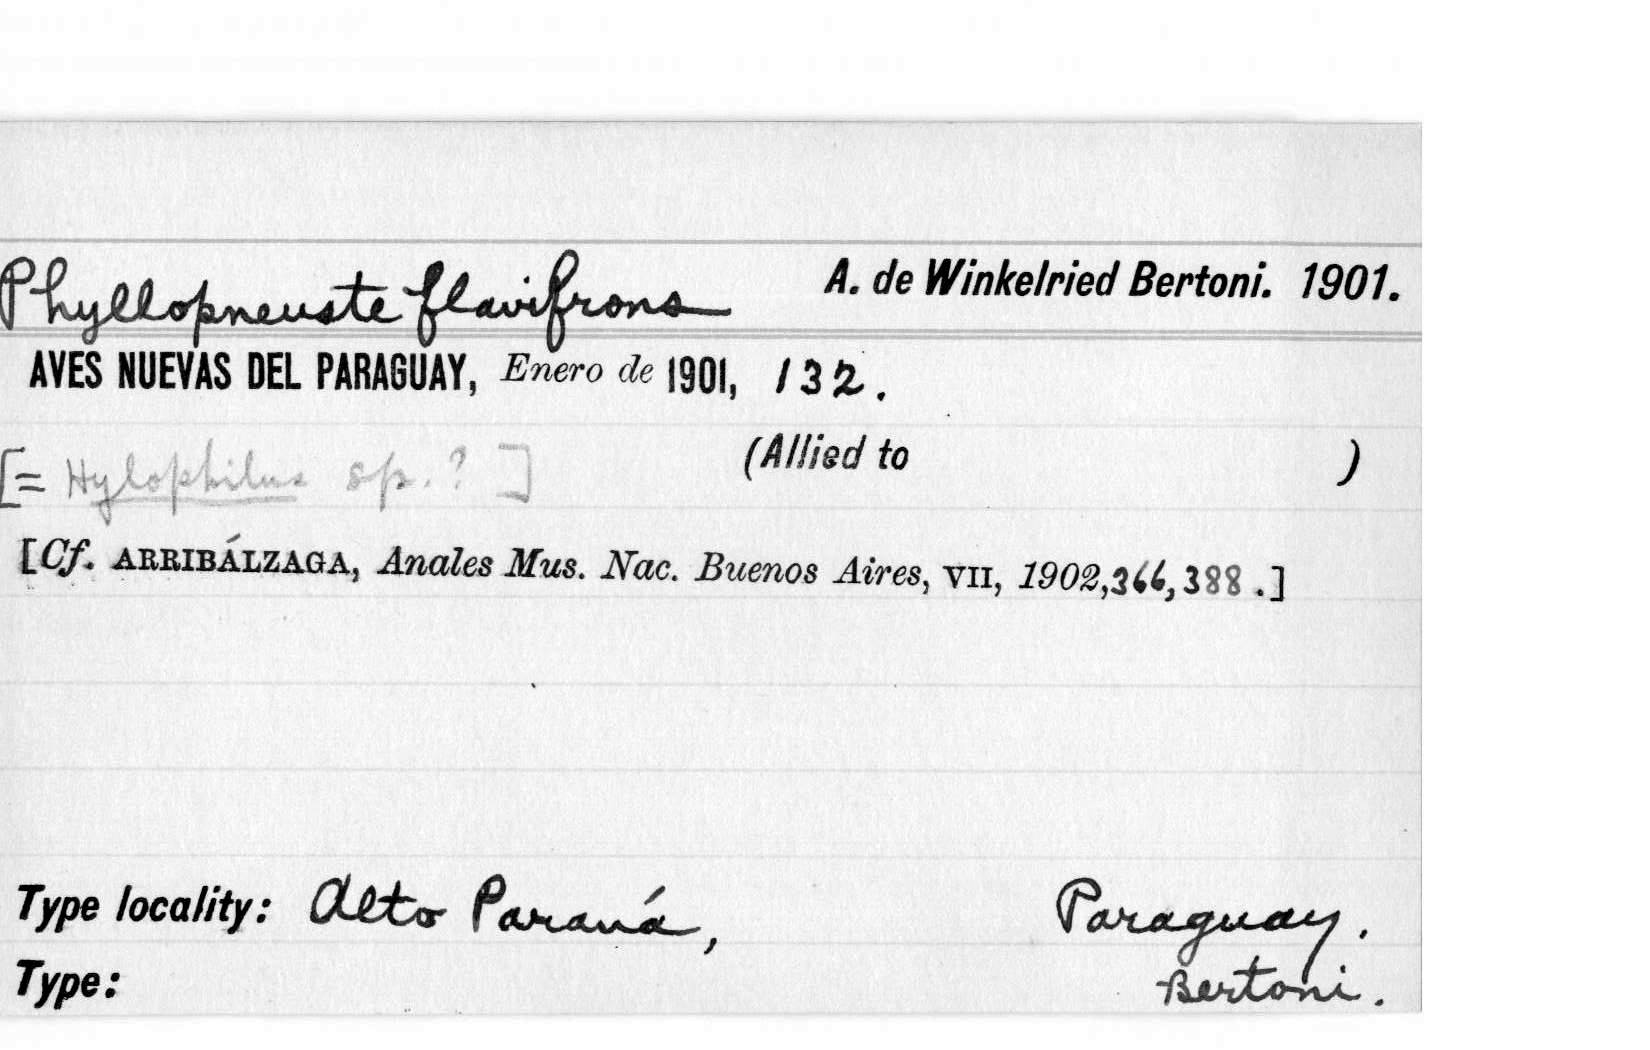 Phyllopneuste flavifrons A. de Winkelried Bertoni. 1901.
AVES NUEVAS DEL PARAGUAY, Enero de 1901, 132.
[= Hylophilus sp.? ] (Allied to )
[Cf. ARRIBÁLZAGA, Anales Mus. Nac. Buenos Aires, VII, 1902,366,388.]
Type locality: Alto Paraná, Paraguay.
Type: Bertoni.